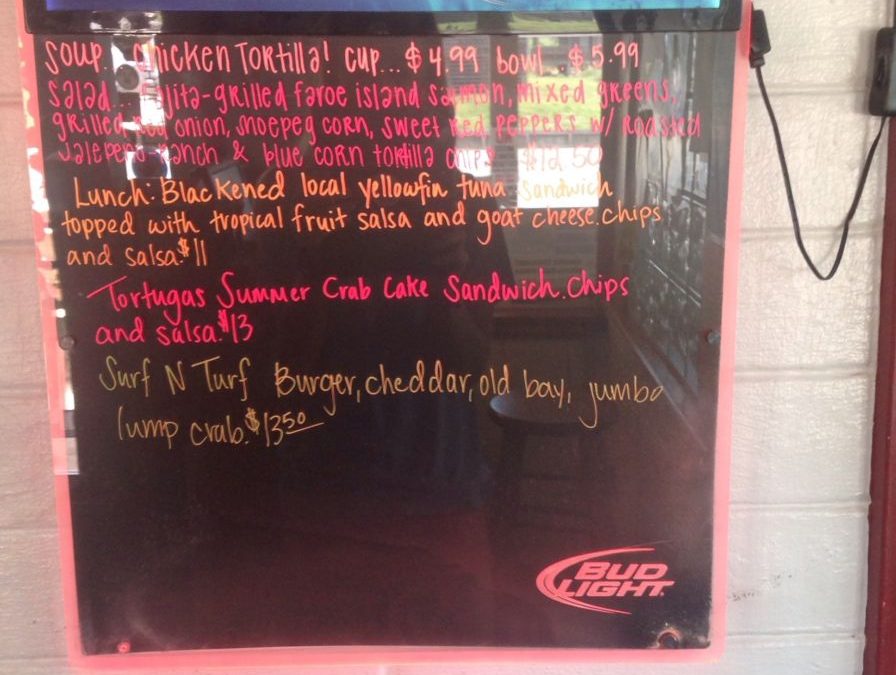 Soup... Chicken Tortilla! cup... $4.99 bowl... $5.99
Salad... Fajita-grilled faroe island salmon, mixed greens,
grilled red onion, shoepeg corn, sweet red peppers w/ roasted
jalepeno ranch & blue corn tortilla chips $12.50
Lunch: Blackened local yellowfin tuna sandwich
topped with tropical fruit salsa and goat cheese. chips
and salsa $11
Tortugas Summer Crab Cake Sandwich. Chips
and salsa. $13
Surf N Turf Burger, cheddar, old bay, jumbo
lump crab. $13 50
BUD
LIGHT